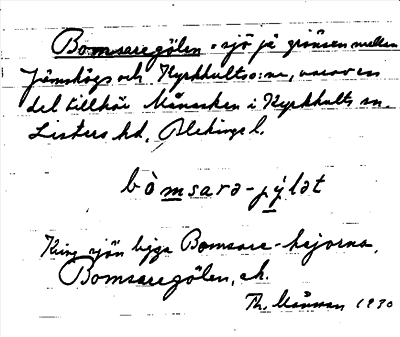 Bomsaregölen, sjö på gränsen mellan
Jämshögs och Kyrkhults s:nr, varav en
del tillhör Månasken i Kyrkhults sn.
Listers hd, Blekinge l.
bòmsarə-jýlət
Kring sjön ligga Bomsare-hejorna,
Bomsaregölen, ek.
Th. Månsson 1930